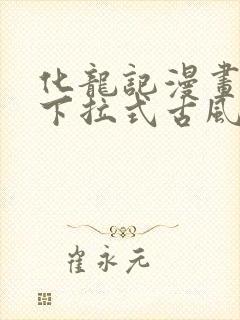 化龍記漫畫
下拉式古風
崔永元